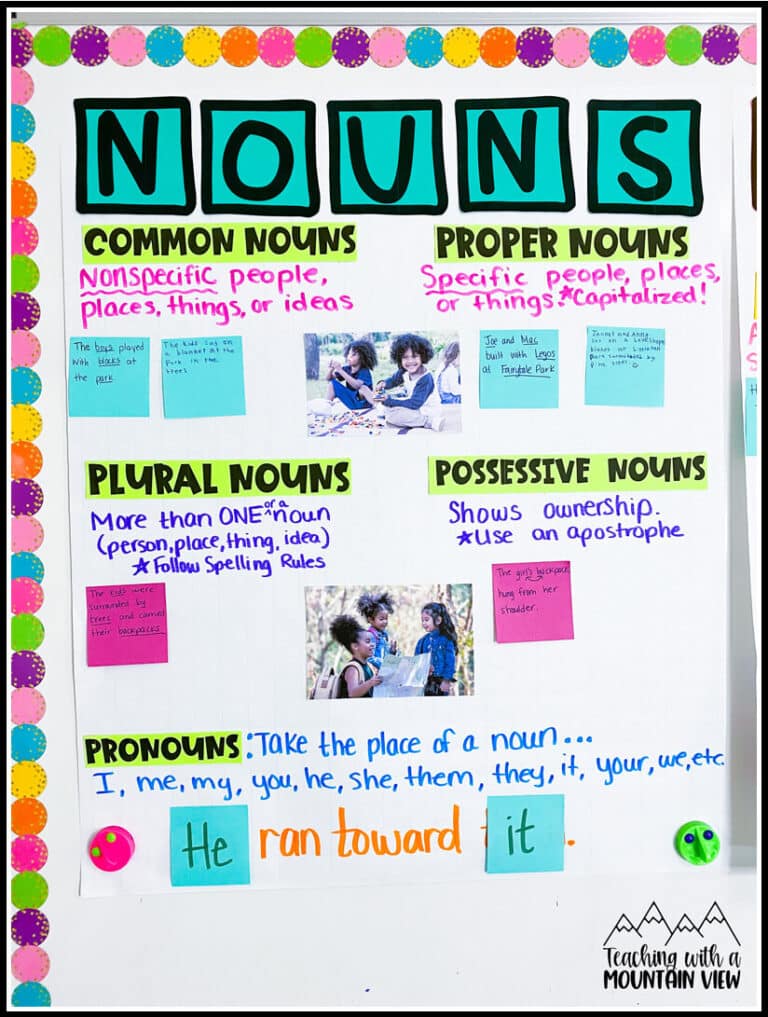 NOUNS
COMMON NOUNS
Nonspecific people,
places, things, or ideas
The boys played
with blocks at
the park.
The kids say on
a blanket at the
Park in the
trees
PROPER NOUNS
Specific people, places,
or things. *Capitalized!
Joe and Mac
built with Legos
at Fairytale Park
Janet and Anna
sat on a
Park surrounded by
Pine trees.
PLURAL NOUNS
More than ONE of a noun
(person, place, thing, idea)
*Follow Spelling Rules
The kids were
surrounded by
trees and carried
their backpacks.
POSSESSIVE NOUNS
Shows ownership.
*Use an apostrophe
The girl's backpack
hung from her
shoulder.
PRONOUNS: Take the place of a noun...
I, me, my, you, he, she, them, they, it, your, we, etc.
He ran toward it.
Teaching with a
MOUNTAIN VIEW